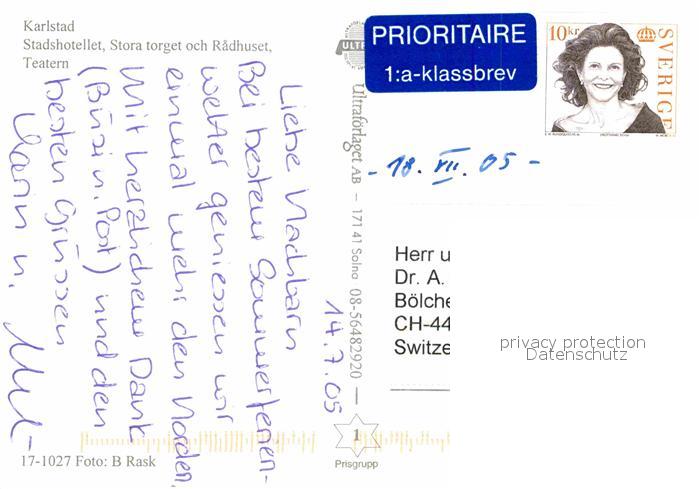 Karlstad
Stadshotellet, Stora torget och Rådhuset,
Teatern
14.7.05
Liebe Nachbarn
Bei bestem Sommerferien-
wetter geniessen wir
einmal mehr den Norden.
Mit herzlichem Dank
(Büsi u. Post) und den
besten Grüssen
Karin u.
17-1027 Foto: B Rask
ULTRA
Ultraförlaget AB — 171 41 Solna 08-56482920 —
1
Prisgrupp
PRIORITAIRE
1:a-klassbrev
10kr
SVERIGE
- 18. VII. 05 -
Herr u
Dr. A.
Bölche
CH-44
Switze
privacy protection
Datenschutz